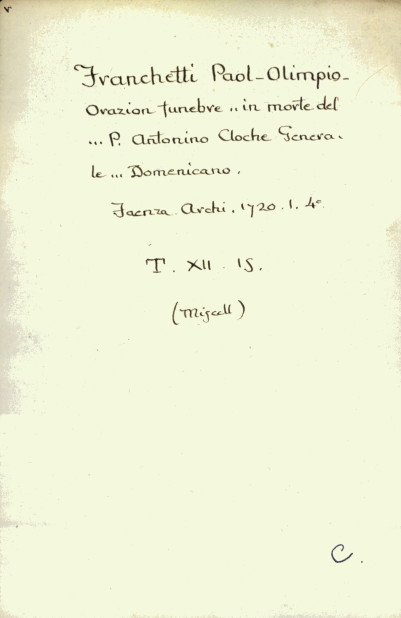 Franchetti Paol-Olimpio-
Orazion funebre .. in morte del
... P. Antonino Cloche Genera-
le ... Domenicano.
Faenza. Archi. 1720. 1. 4°
T. XII. 15.
(Miscell)
C.